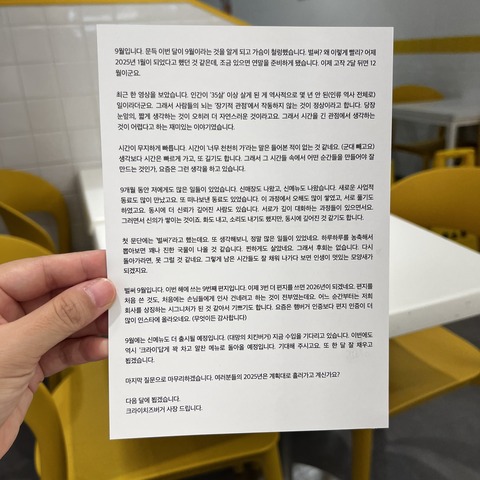 9월입니다. 문득 이번 달이 9월이라는 것을 알게 되고 가슴이 철렁했습니다. 벌써? 왜 이렇게 빨리? 어제
2025년 1월이 되었다고 했던 것 같은데, 조금 있으면 연말을 준비하게 됐습니다. 어제 고작 2달 뒤면 12
월이군요.
최근 한 영상을 보았습니다. 인간이 '35살' 이상 살게 된 게 역사적으로 몇 년 안 된(인류 역사 전체로)
일이라더군요. 그래서 사람들의 뇌는 '장기적 관점'에서 작동하지 않는 것이 정상이라고 합니다. 당장
눈앞의, 짧게 생각하는 것이 오히려 더 자연스러운 것이라고요. 그래서 시간을 긴 관점에서 생각하는
것이 어렵다고 하는 재미있는 이야기였습니다.
시간이 무지하게 빠릅니다. 시간이 '너무 천천히 가'라는 말은 들어본 적이 없는 것 같네요. (군대 빼고요)
생각보다 시간은 빠르게 가고, 또 길기도 합니다. 그래서 그 시간들 속에서 어떤 순간들을 만들어야 잘
만드는 것인가, 요즘은 그런 생각을 하고 있습니다.
9개월 동안 저에게도 많은 일들이 있었습니다. 신매장도 나왔고, 신메뉴도 나왔습니다. 새로운 사업적
동료도 많이 만났고요. 또 떠나보낸 동료도 있었습니다. 이 과정에서 오해도 많이 쌓였고, 서로 풀기도
하였고요. 동시에 더 신뢰가 깊어진 사람도 있습니다. 서로가 깊이 대화하는 과정들이 있으면서요.
그러면서 신의가 쌓이는 것이죠. 화도 내고, 소리도 내기도 했지만, 동시에 깊어진 것 같기도 합니다.
첫 문단에는 '벌써?'라고 했는데요. 또 생각해보니, 정말 많은 일들이 있었네요. 하루하루를 농축해서
뽑아보면 꽤나 진한 국물이 나올 것 같습니다. 찐하게도 살았네요. 그래서 후회는 없습니다. 다시
돌아가라면, 못 그럴 것 같네요. 그렇게 남은 시간들도 잘 채워 나가다 보면 인생이 멋있는 모양새가
되겠지요.
벌써 9월입니다. 이번 해에 쓰는 9번째 편지입니다. 이제 3번 더 편지를 쓰면 2026년이 되겠네요. 편지를
처음 쓴 것도, 처음에는 손님들에게 인사 건네려고 하는 것이 전부였는데요. 어느 순간부터는 저희
회사를 상징하는 시그니처가 된 것 같아서 기쁘기도 합니다. 요즘은 햄버거 인증보다 편지 인증이 더
많이 인스타에 올라오네요. (무엇이든 감사합니다)
9월에는 신메뉴도 더 출시될 예정입니다. (대망의 치킨버거) 지금 수업을 기다리고 있습니다. 이번에도
역시 '크라이'답게 꽉 차고 알찬 메뉴로 돌아올 예정입니다. 기대해 주시고요. 또 한 달 잘 채우고
뵙겠습니다.
마지막 질문으로 마무리하겠습니다. 여러분들의 2025년은 계획대로 흘러가고 계신가요?
다음 달에 뵙겠습니다.
크라이치즈버거 사장 드립니다.